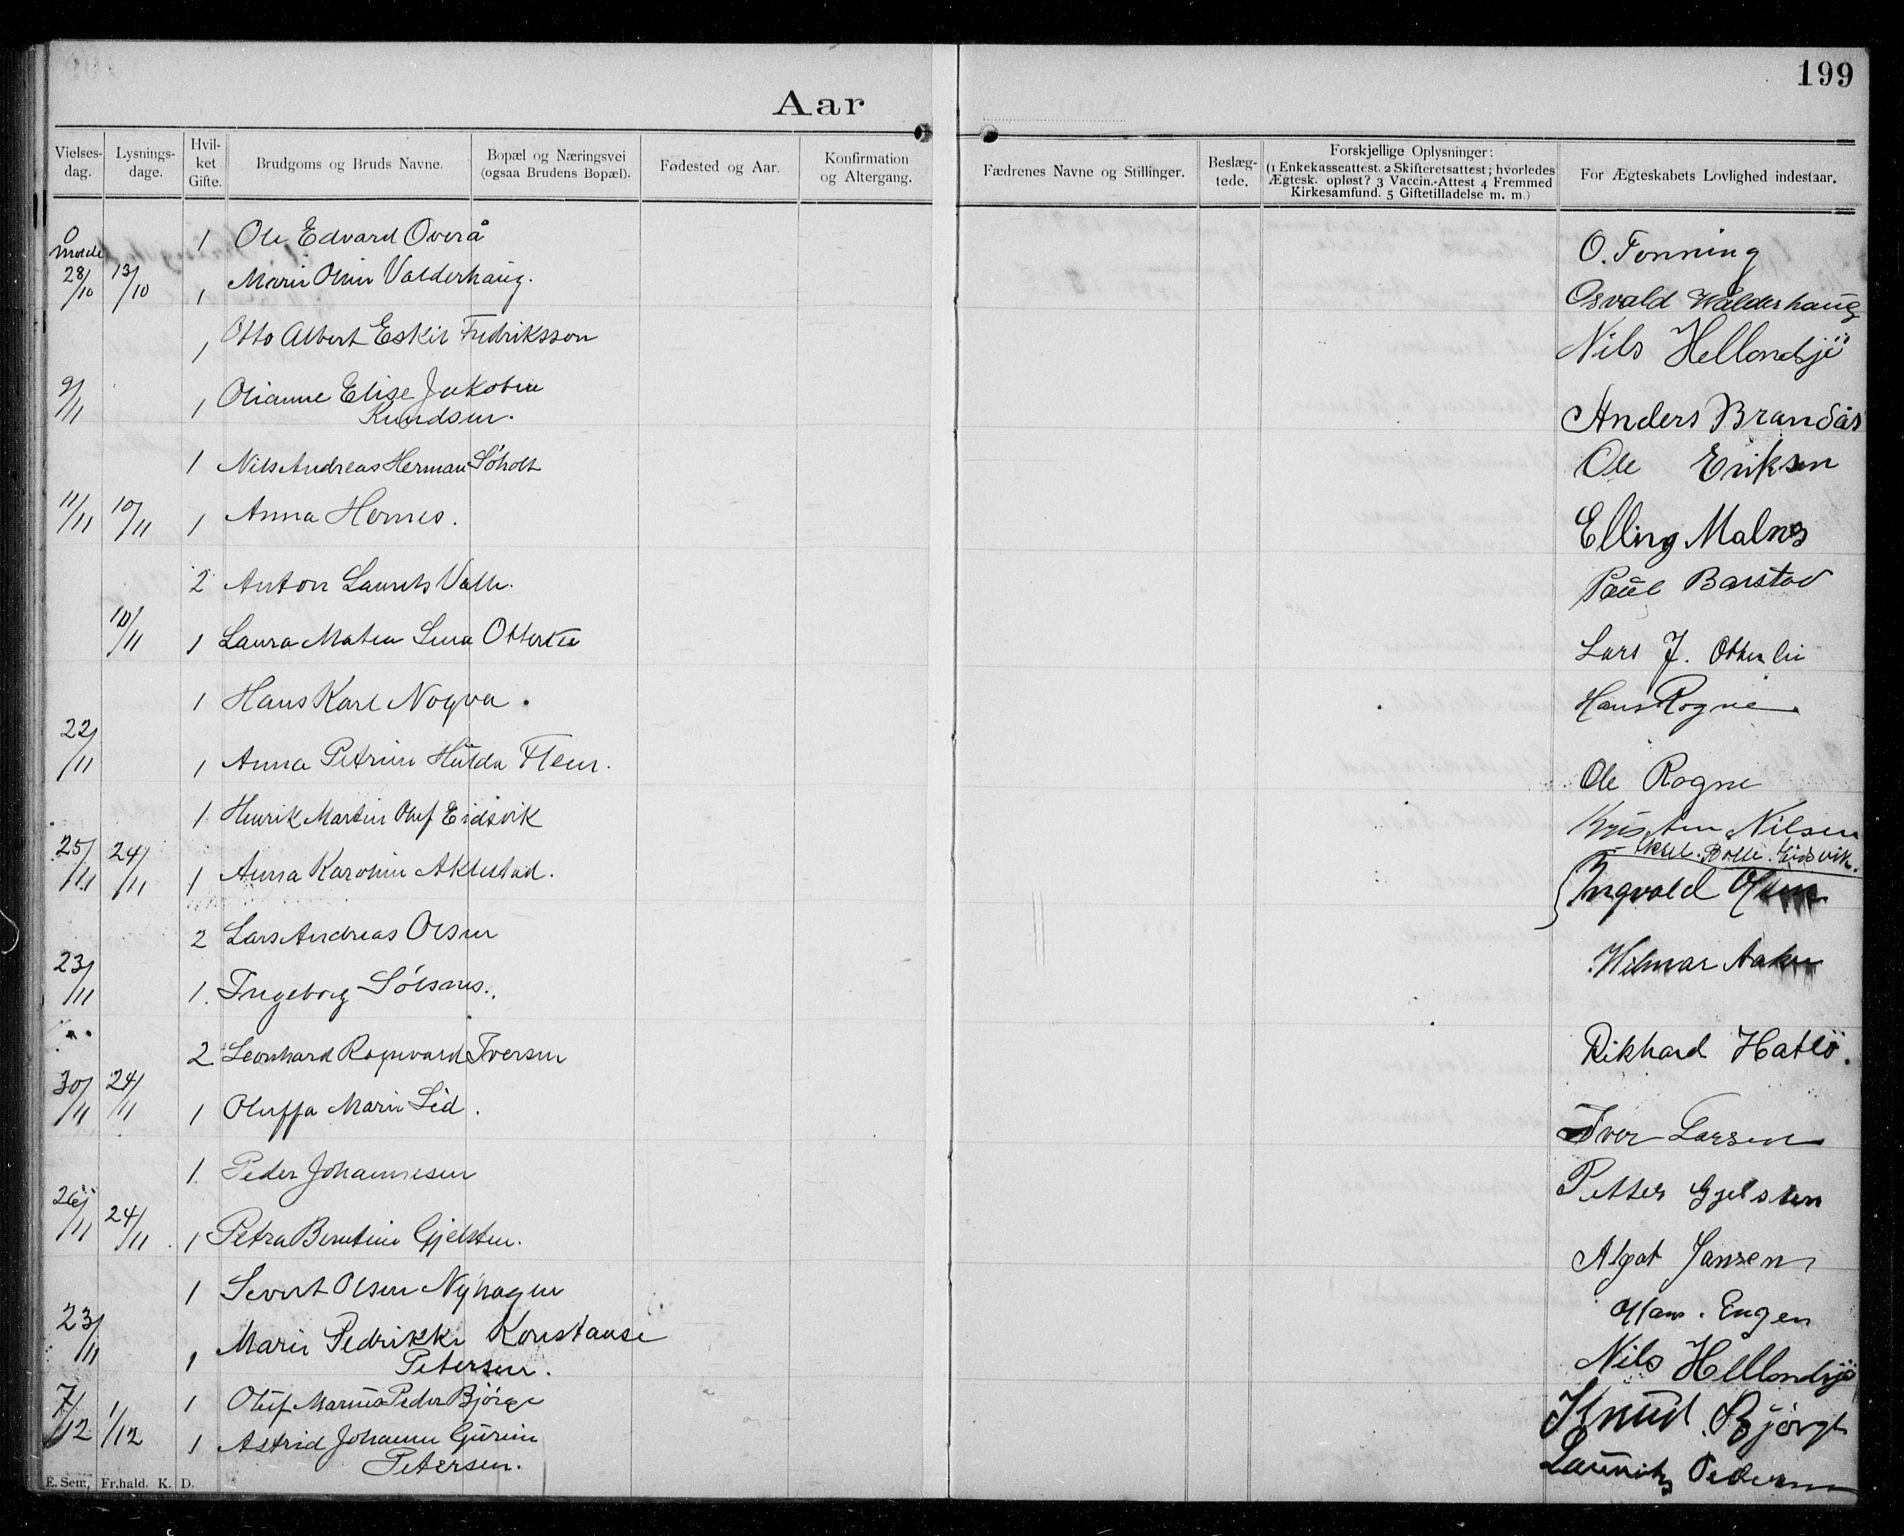 199
Aar
Vielses-dag. Lysnings-dage. Hvil-ket Gifte. Brudgoms og Bruds Navne. Bopæl og Næringsvei (ogsaa Brudens Bopæl). Fødested og Aar. Konfirmation og Altergang. Fædrenes Navne og Stillinger. Beslæg-tede. Forskjellige Oplysninger: (1 Enkekasseattest. 2 Skifteretsattest; hvorledes Ægtesk. opløst? 3 Vaccin.-Attest 4 Fremmed Kirkesamfund. 5 Giftetilladelse m. m.) For Ægteskabets Lovlighed indestaar.
Molde 1 Ole Edvard Overå O. Fonning
28/10 13/10 1 Marie Oline Valderhaug. Osvald Walderhaug
1 Otto Albert Eskil Fredriksson Nils Hellandsjö
9/11 1 Olianne Elise Jakobine Anders Brandås
Knudsen.
1 Nils Andreas Herman Søholt Ole Eriksen
11/11 10/11 1 Anna Hernes. Elling Malnes
2 Anton Laurits Valle. Paul Barstad
10/11 1 Laura Matea Lura Otterlei Lars J. Otterlei
1 Hans Karl Nogva. Hans Rogne
22/11 1 Anna Petrine Hulda Flem. Ole Rogne
1 Henrik Martin Oluf Eidsvik Kristen Nilsen
Bolle. Eidsvik.
25/11 24/11 1 Anna Karoline Aklestad. Ingvald Olsen
2 Lars Andreas Olsen
23/11 1. Ingeborg Solsnes. Hilmar Aaker
2 Leonhard Rognvard Iversen Rikhard Hatlö.
30/11 24/11 1 Oluffa Marie Lid. Iver Larsen
1. Peder Johannesen Petter Gjelsten
26/11 24/11. 1 Petra Berntine Gjelsten.
1 Severt Olsen Nyhagen Algot Jansen
23/11 1 Marie Pedrikke Konstanse Hans. Engen
Petersen. Nils Hellandsjö
7/12 1/12 1 Oluf Marius Peder Bjørge Knud Bjørge
1 Astrid Johanne Gurine
Petersen. Lauritz Pedersen
E. Sem, Fr.hald. K. D.